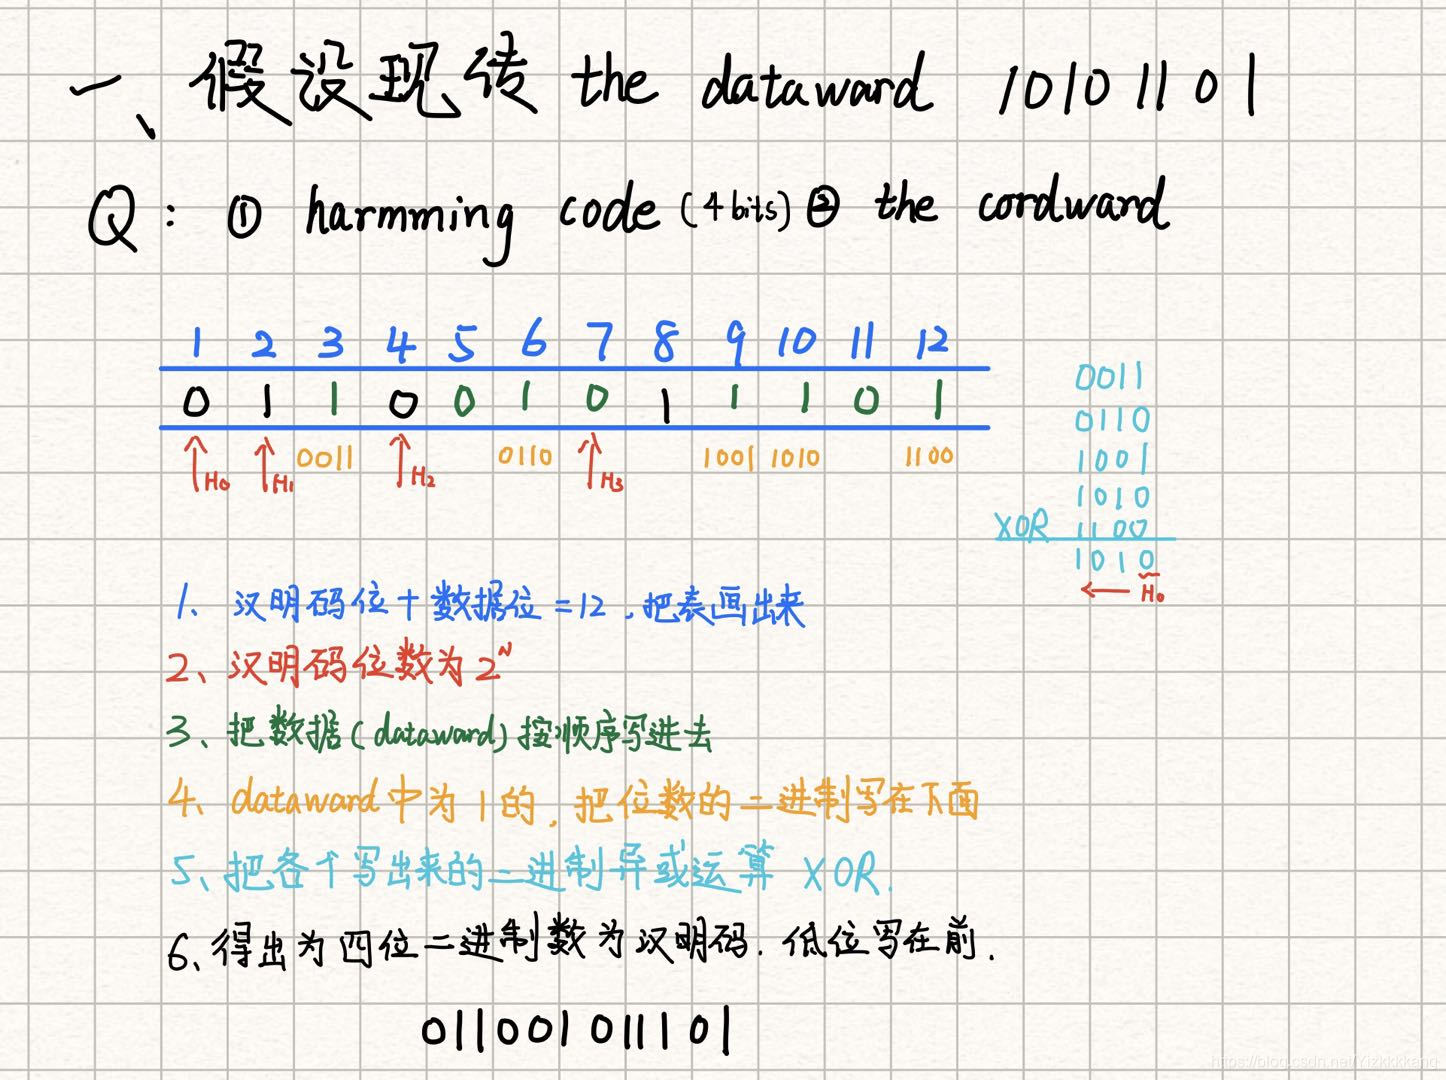 一、假设现传 the dataward 10101101
Q: ① harmming code (4bits) ② the cordward
1 2 3 4 5 6 7 8 9 10 11 12
0 1 1 0 0 1 0 1 1 1 0 1
H₀ H₁ 0011 H₂ 0110 H₃ 1001 1010 1100
0011
0110
1001
1010
XOR 1100
1010
← H₀
1、汉明码位+数据位=12,把表画出来
2、汉明码位数为2ᴺ
3、把数据(dataward)按顺序写进去
4、dataward中为1的,把位数的二进制写在下面
5、把各个写出来的二进制异或运算 XOR.
6、得出为四位二进制数为汉明码.低位写在前.
011001011101
https://blog.csdn.net/Yizkkkkang